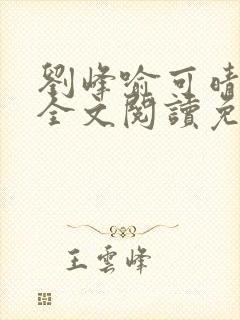 劉峰喻可晴
全文閱讀免
王雲峰